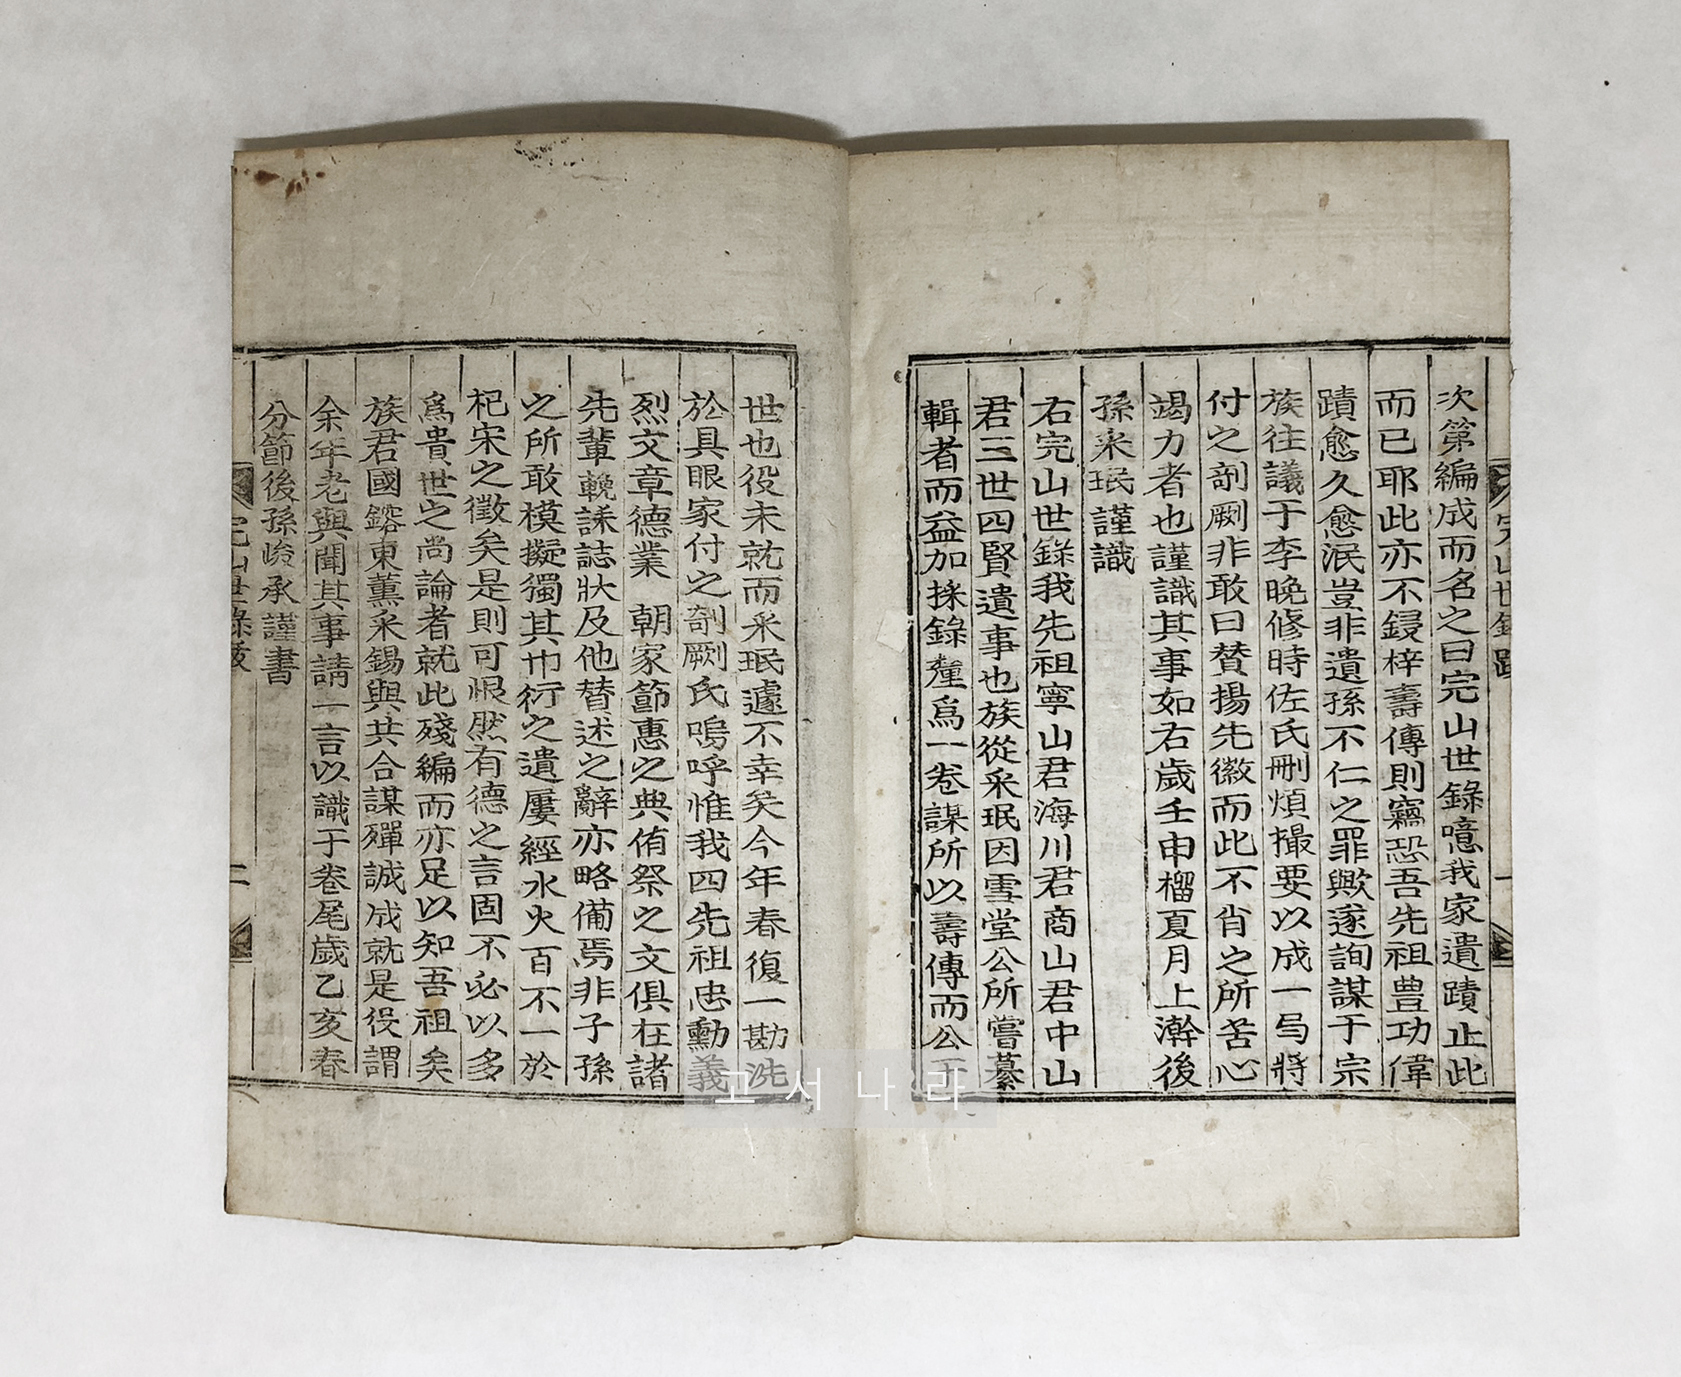 次第編成而名之曰完山世錄噫我家遺蹟止此
而已耶此亦不鋟梓壽傳則竊恐吾先祖豊功偉
蹟愈久愈泯豈非遺孫不仁之罪歟遂詢謀于宗
族往議于李晩修時佐氏刪煩撮要以成一局將
付之剞劂非敢曰賛揚先徽而此不肖之所苦心
竭力者也謹識其事如右歲壬申榴夏月上澣後
孫采珉謹識
右完山世錄我先祖寧山君海川君商山君中山
君三世四賢遺事也族從采珉因雪堂公所嘗纂
輯者而益加採錄釐爲一卷謀所以壽傳而公于
世也役未就而采珉遽不幸矣今年春復一勘洗
於具眼家付之剞劂氏嗚呼惟我四先祖忠勳義
烈文章德業 朝家節惠之典侑祭之文俱在諸
先輩輓誄誌狀及他替述之辭亦略備焉非子孫
之所敢模擬獨其巾衍之遺屢經水火百不一於
杞宋之徵矣是則可恨然有德之言固不必以多
爲貴世之尚論者就此殘編而亦足以知吾祖矣
族君國鎔東薰采錫與共合謀殫誠成就是役謂
余年老與聞其事請一言以識于卷尾歲乙亥春
分節後孫峻承謹書
完山世錄跋
二
고서나라